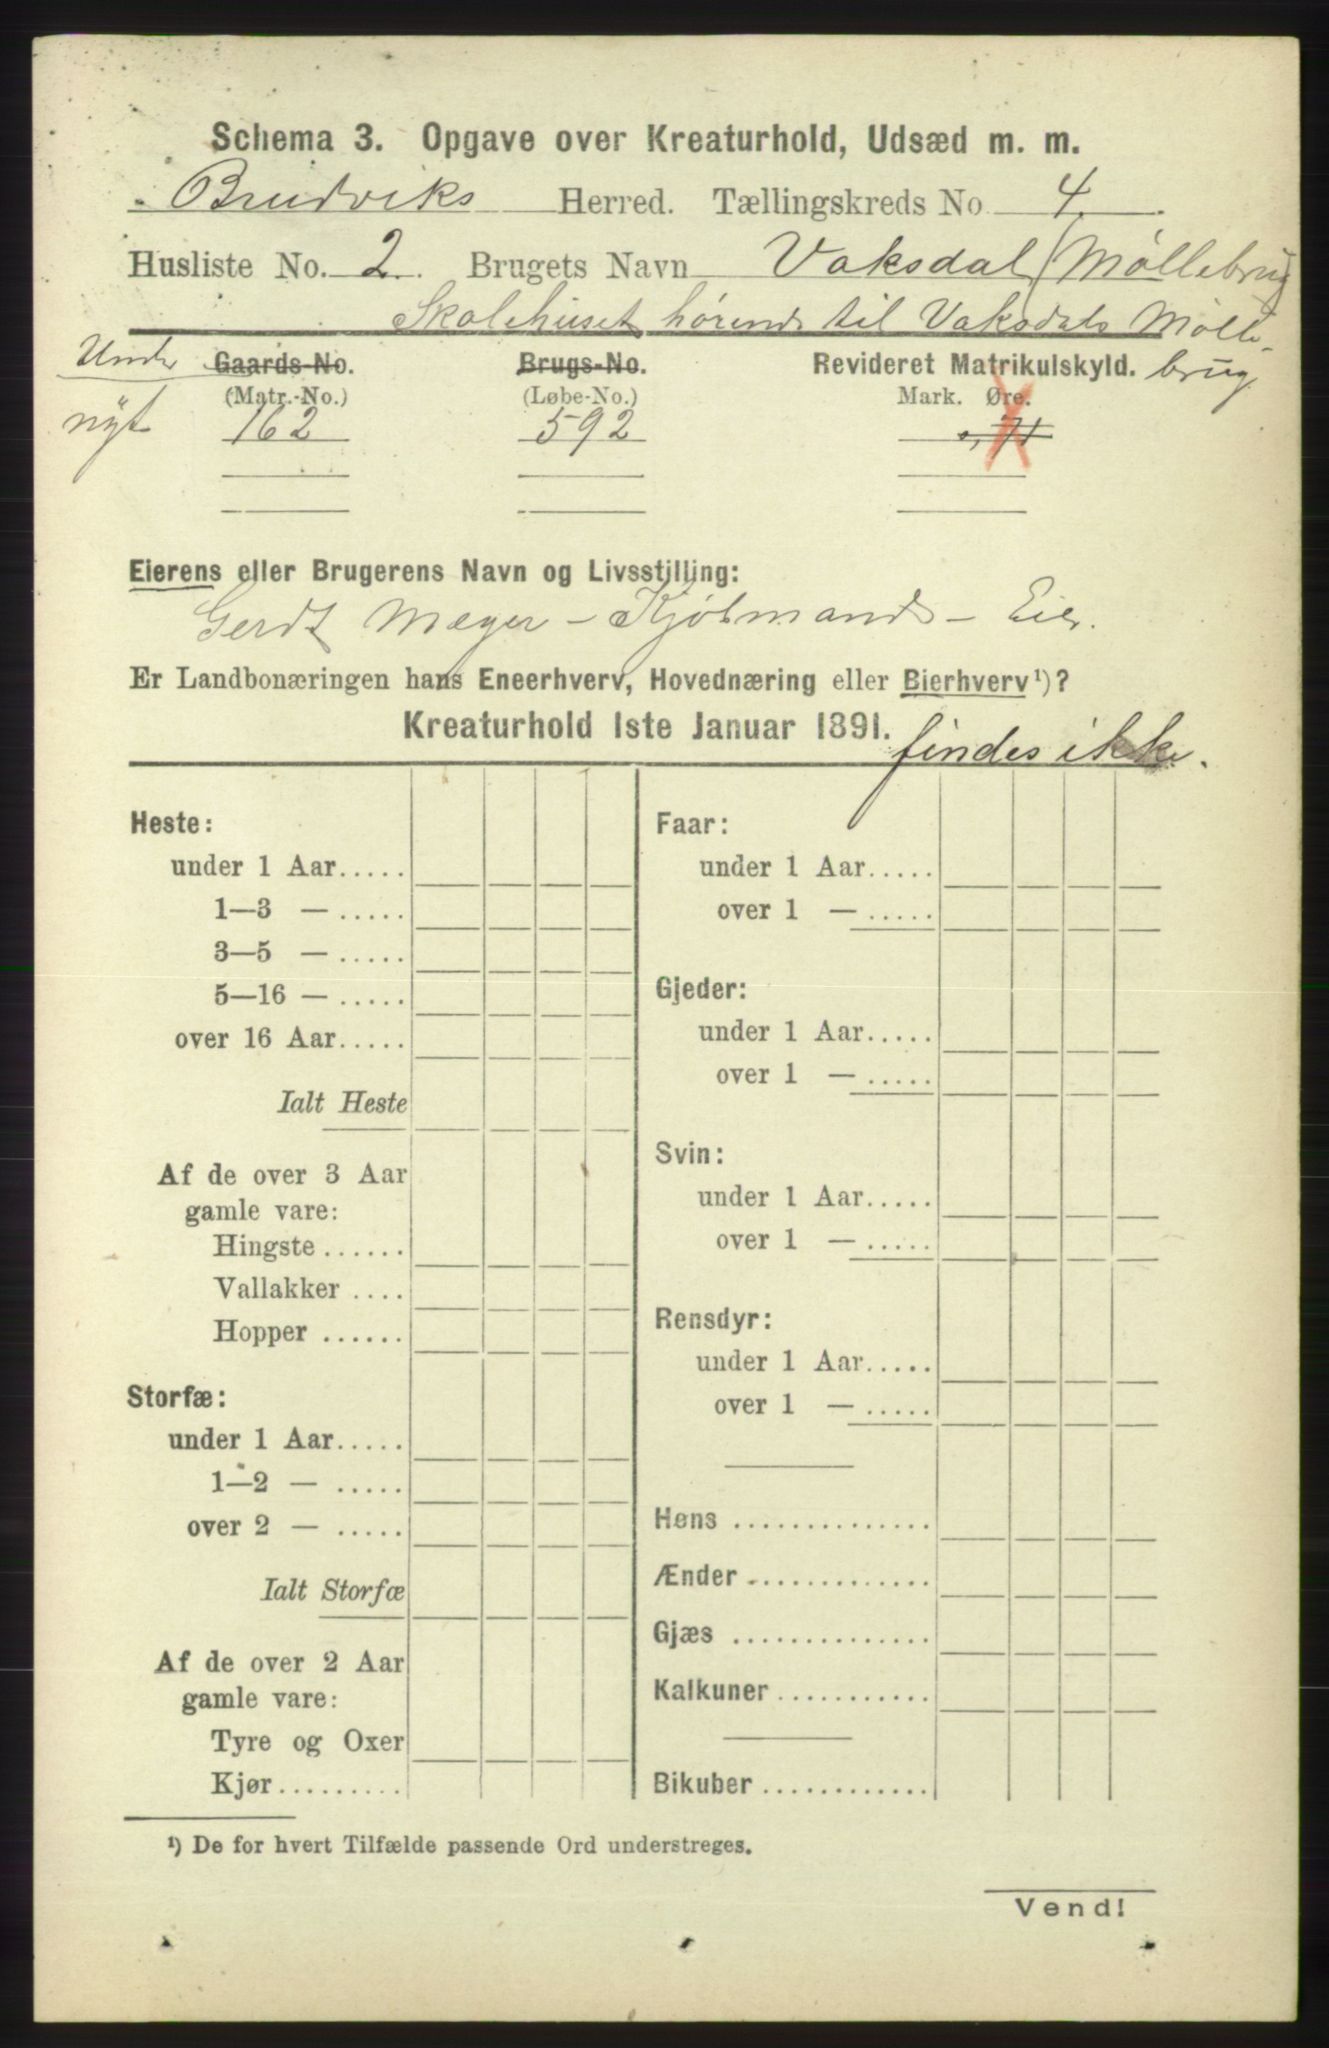 Schema 3. Opgave over Kreaturhold, Udsæd m. m.
Brudviks Herred. Tællingskreds No 4.
Husliste No. 2 Brugets Navn Vaksdal (Møllebrug
Skolehuset hørende til Vaksdals Mølle-
brug
Under Gaards-No. Brugs-No. Revideret Matrikulskyld.
(Matr.-No.) (Løbe-No.) Mark. Øre.
nyt 162 592 0,71
Eierens eller Brugerens Navn og Livsstilling:
Gerdt Meyer - Kjøbmand - Eier.
Er Landbonæringen hans Eneerhverv, Hovednæring eller Bierhverv¹)?
Kreaturhold 1ste Januar 1891. findes ikke.
Heste:
under 1 Aar.....
1—3 — .....
3—5 — .....
5—16 — .....
over 16 Aar.....
Ialt Heste
Af de over 3 Aar
gamle vare:
Hingste ......
Vallakker ....
Hopper ......
Storfæ:
under 1 Aar.....
1—2 — .....
over 2 — .....
Ialt Storfæ
Af de over 2 Aar
gamle vare:
Tyre og Oxer
Kjør.........
Faar:
under 1 Aar.....
over 1 — .....
Gjeder:
under 1 Aar.....
over 1 — .....
Svin:
under 1 Aar.....
over 1 — .....
Rensdyr:
under 1 Aar.....
over 1 — .....
Høns ..............
Ænder .............
Gjæs ..............
Kalkuner ...........
Bikuber ............
¹) De for hvert Tilfælde passende Ord understreges.
Vend!